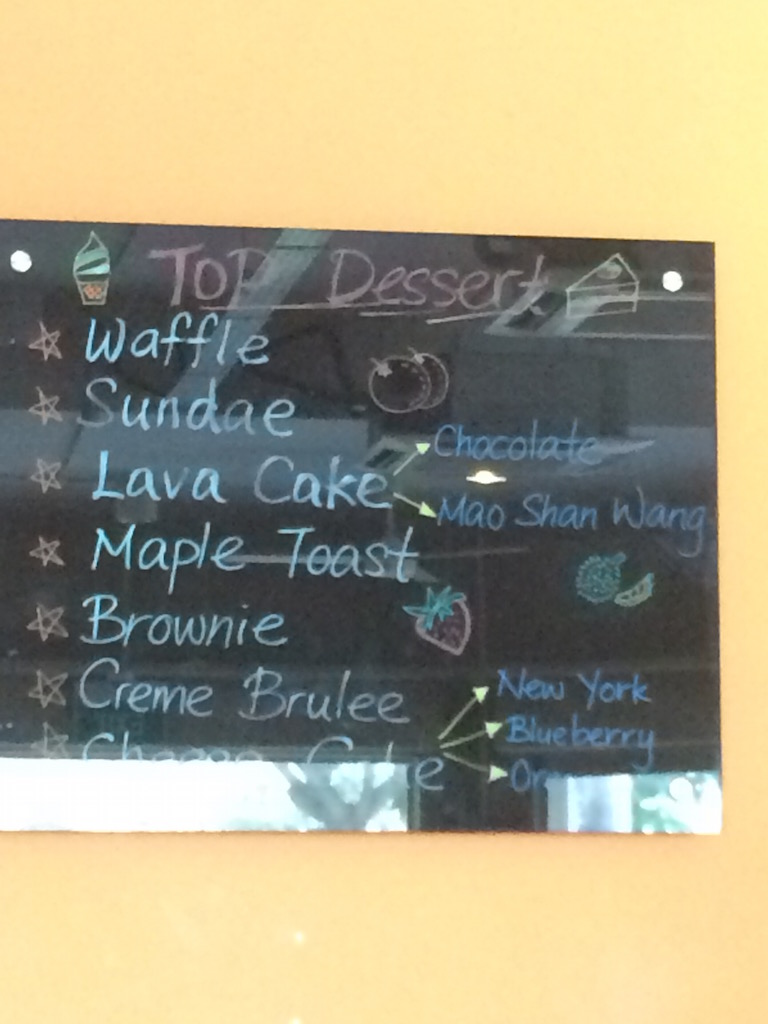 TOP Dessert
Waffle
Sundae
Lava Cake
Chocolate
Mao Shan Wang
Maple Toast
Brownie
Creme Brulee
Cheese Cake
New York
Blueberry